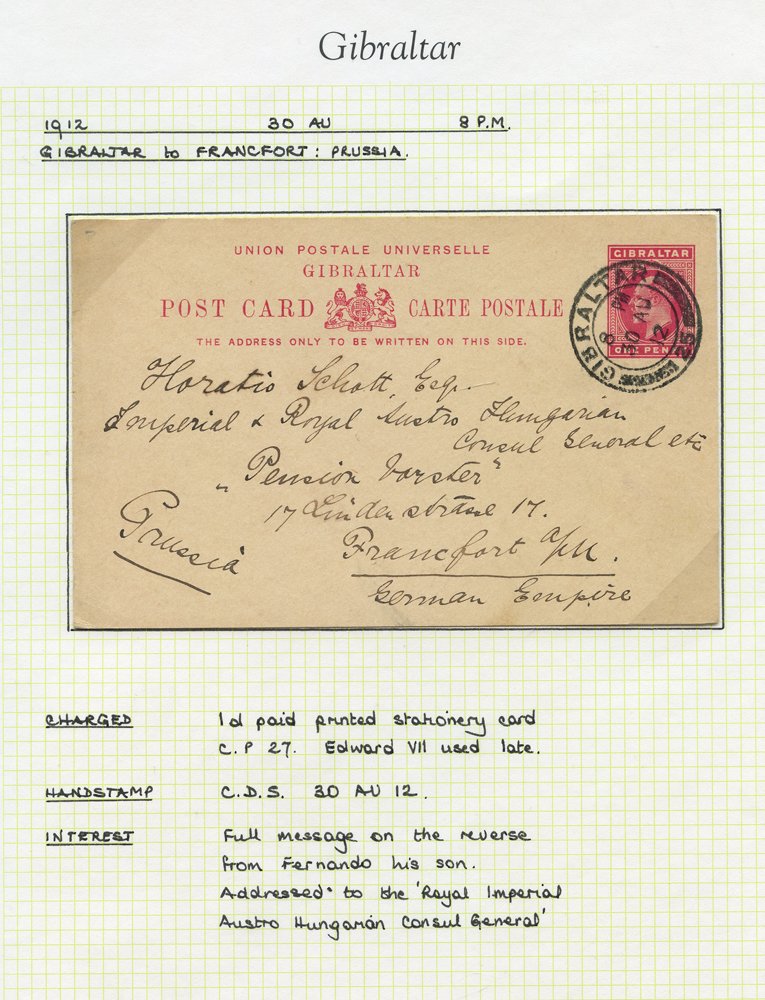 Gibraltar
1912 30 AU 8 P.M.
GIBRALTAR to FRANCFORT: PRUSSIA.
UNION POSTALE UNIVERSELLE
GIBRALTAR
POST CARD CARTE POSTALE
THE ADDRESS ONLY TO BE WRITTEN ON THIS SIDE.
GIBRALTAR
ONE PENNY
GIBRALTAR
8 M
30 AU
12
Horatio Schott, Esq.
Imperial & Royal Austro Hungarian
Consul General etc
„Pension Vorster"
17 Lindenstrasse 17.
Prussia
Francfort a/M.
German Empire
CHARGED 1d paid printed stationery card
C.P 27. Edward VII used late.
HANDSTAMP C.D.S. 30 AU 12.
INTEREST Full message on the reverse
from Fernando his son.
Addressed to the 'Royal Imperial
Austro Hungarian Consul General'